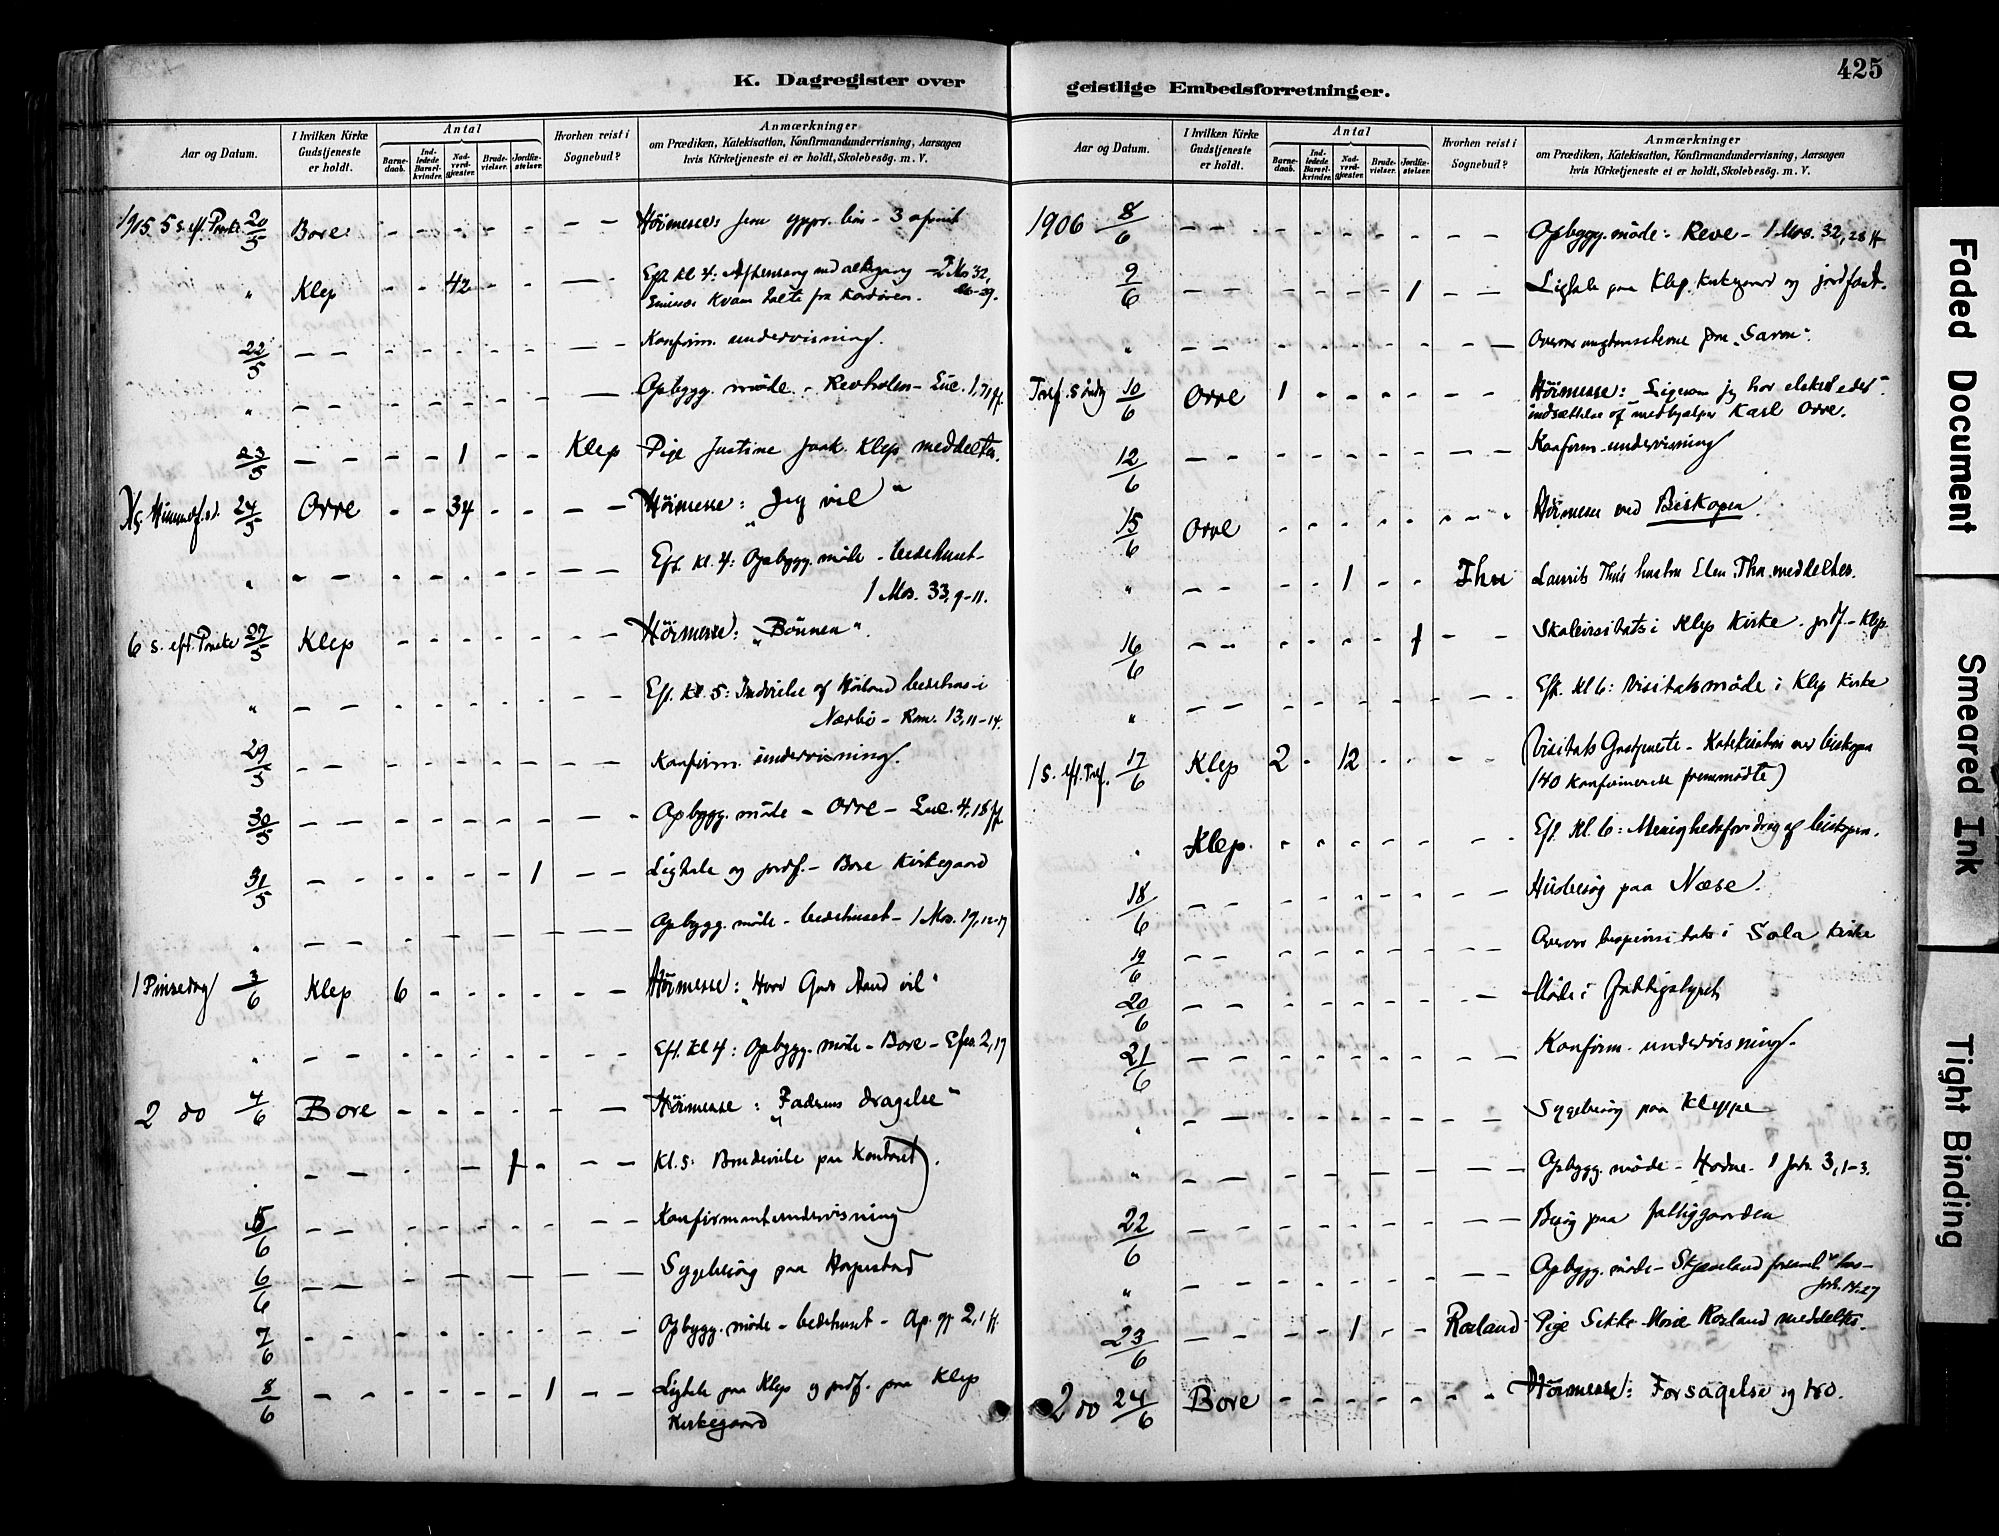 425
K. Dagregister over
geistlige Embedsforretninger.
Aar og Datum.
I hvilken Kirke Gudstjeneste er holdt.
Antal
Barnedaab.
Indledede Barselkvinder.
Nadverdgjæster.
Brudevielser.
Jordfæstelser.
Hvorhen reist i Sognebud?
Anmærkninger
om Prædiken, Katekisation, Konfirmandundervisning, Aarsagen
hvis Kirketjeneste ei er holdt, Skolebesög. m. V.
1905 5 s. eft. Paaske 20/5 Bore - - - - - - -
" Klep - - 42 - - - Eft. Kl. 4: Aftensang med altergang - 2 Mos 32,
Kvam talte fra
22/5 - - - - - - - Konfirm. undervisning.
" - - - - - - - Opbygg. møde - Revholen - Luc. 1,71 ff.
23/5 - - - - 1 - - Klep Pige Justine Klep meddeltes.
Himmelf. 24/5 Orre - - 34 - - - - Høimesse: "Jeg vil"
" - - - - - - - Eft. Kl. 4: Opbygg. møde - bedehuset -
1 Mos. 33, 9-11.
6 s. eft. Paaske 27/5 Klep - - - - - - - Høimesse: "Bønnen".
" - - - - - - - Eft. Kl. 5: Indvielse af bedehus i
Nærbø - Rom. 13, 11-14.
29/5 - - - - - - - Konfirm. undervisning.
30/5 - - - - - - - Opbygg. møde - Orre - Luc. 4, 18 ff.
31/5 - - - - - 1 - - Ligtale og jordf. - Bore Kirkegaard
" - - - - - - - Opbygg. møde - bedehuset - 1 Mos. 19, 12-17
1 Pinsedag 3/6 Klep 6 - - - - - - Høimesse: "Hvad Guds Aand vil"
" - - - - - - - Eft. Kl 4: Opbygg. møde - Bore - Efes. 2, 17
2 do 4/6 Bore - - - - - - - Høimesse: "Faderens dragelse"
" - - - - 1 - - - Kl. 5: Brudevielse paa Kontoret).
5/6 - - - - - - - Konfirmantundervisning
6/6 - - - - - - - Sygebesøg paa
7/6 - - - - - - - Opbygg. møde - bedehuset - Ap. gj. 2, 1 ff.
8/6 - - - - - 1 - - Ligtale paa Klep og jordf. paa Klep
Kirkegaard
Aar og Datum.
I hvilken Kirke Gudstjeneste er holdt.
Antal
Barnedaab.
Indledede Barselkvinder.
Nadverdgjæster.
Brudevielser.
Jordfæstelser.
Hvorhen reist i Sognebud?
Anmærkninger
om Prædiken, Katekisation, Konfirmandundervisning, Aarsagen
hvis Kirketjeneste ei er holdt, Skolebesög. m. V.
1906 8/6 - - - - - - - Opbygg. møde: Reve - 1 Mos. 32, 23 ff
9/6 - - - - - 1 - - Ligtale paa Klep Kirkegaard og jordfæst.
" - - - - - - -
Tref. Søndg 10/6 Orre 1 - - - - - - Høimesse: "Ligesom jeg har elsket eder"
indsættelse af medhjælper Karl Orre.
12/6 - - - - - - - Konfirm. undervisning
15/6 Orre - - - - - - - Høimesse ved Biskopen.
" - - - 1 - - Thu Laurits Thu's hustru Elen Thu meddeltes.
16/6 - - - - - 1 - - Skolevisitats i Klep Kirke - jordf. - Klep.
" - - - - - - - Eft. Kl 6: Visitatsmøde i Klep Kirke
1 s. eft. Tref. 17/6 Klep 2 - 12 - - - - (Visitats Gudstjeneste - Katekisation ved biskopen
140 Konfirmerede fremmødte)
" Klep. - - - - - - - Eft. Kl. 6: Menighedsforedrag af biskopen.
18/6 - - - - - - - Husbesøg paa Næse.
19/6 - - - - - - - Overvar bispevisitats i Sola Kirke
20/6 - - - - - - - Møde i Fattigstyret
21/6 - - - - - - - Konfirm. undervisning.
" - - - - - - - Sygebesøg paa Kleppe
" - - - - - - - Opbygg. møde - Hodne - 1 Joh. 3, 1-3.
22/6 - - - - - - - Besøg paa fattiggaarden
" - - - - - - - Opbygg. møde - Skjæveland forsaml. hus -
Joh. 14. 27
23/6 - - - - 1 - - Roaland Pige Marie Roaland meddeltes.
2 do 24/6 Bore - - - - - - - Høimesse: Forsagelse og tro.
Faded Document
Smeared Ink
Tight Binding